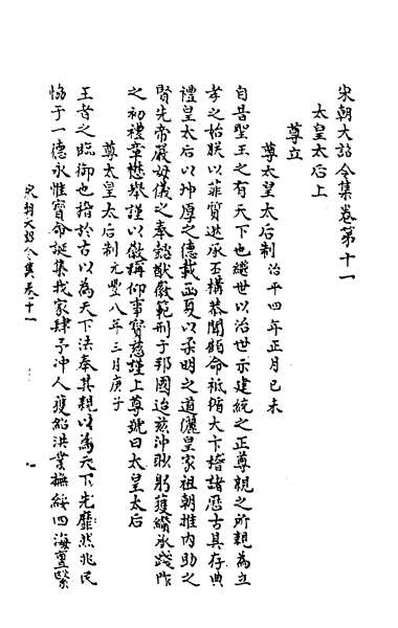 宋朝大詔令集卷第十一
太皇太后上
尊立
尊太皇太后制治平四年正月己未
自昔聖王之有天下也繼世以治世示建統之正尊親之所親為立
孝之始朕以菲質遜承丕構恭聞顧命祗循大卞稽諸歷古具存典
禮皇太后以沖厚之德載函夏以柔明之道儷皇家祖朝推內助之
賢先帝嚴母儀之奉懿猷徽範刑于邦國迨茲沖眇躬獲纘承踐阼
之初禮章懋舉謹以徽稱仰事寶慈謹上尊號曰太皇太后
尊太皇太后制元豐八年三月庚子
王者之臨御也稽於古以為天下法奉其親以為天下先靡然兆民
協于一德永惟寶命誕集我家肆予沖人獲紹洪業撫綏四海亶緊
宋朝大詔令集卷十一